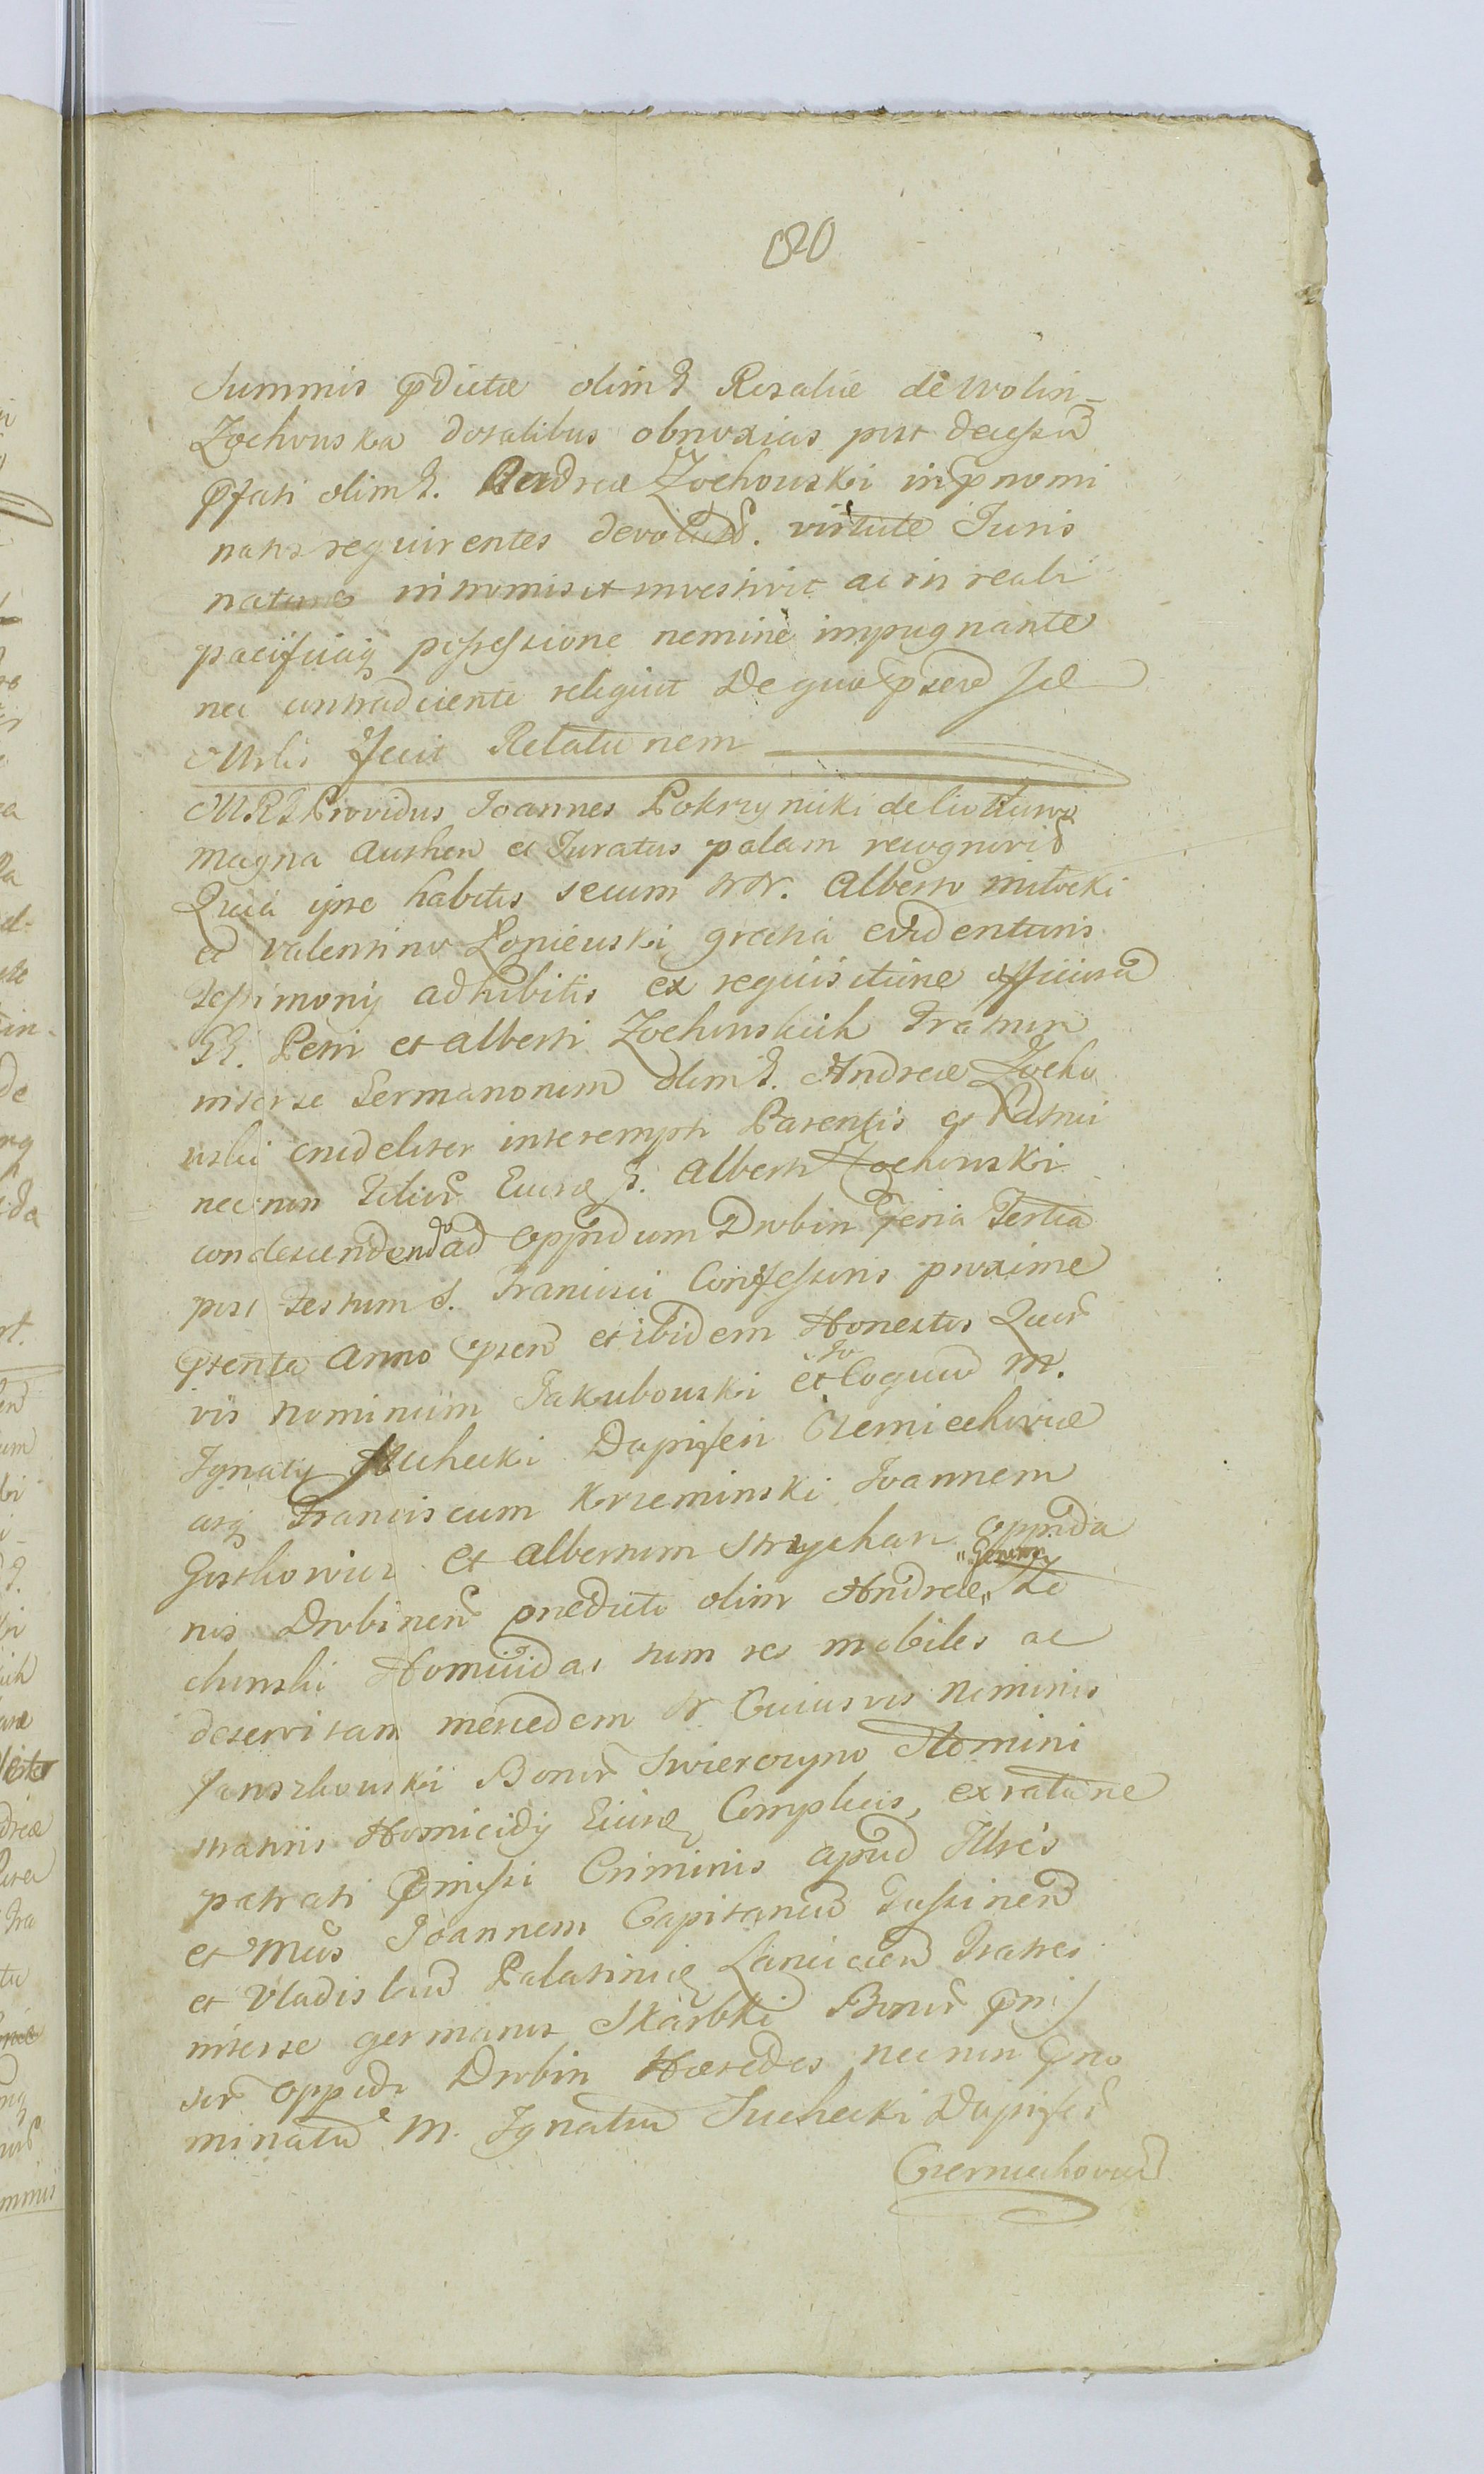 020
Summis pdictæ olim G Rosaliæ de Wolin-
Zochowska dotalibus obnoxias post decessu
pfati olim G. Andreæ Zochowski in pnomi
natos requirentes devolut. virtute Juris
naturæ intromisit et investivit ac in reali
pacificaq possessione nemine impugnante
nec contradicente reliquit De quo psens suæ
Mrlis fecit Relationem
MRS Providus Joannes Pokrzynicki de
magna authen et Juratus palam recognovit
Quia ipse habitis secum NN. Alberto Miłocki
et Valentino Łoniewski gratia evidentioris
testimonij adhibitis ex requisitione officiosa
GG. Petri et Alberti Zochowskich Fratrum
inter se Germanorum olim G. Andreæ Zocho
wski crudeliter interempti Parentis et Patrui
nec non Filior Eius G. Alberti Zochowski
condescendendo ad Oppidum Drobin Feria Tertia
post Festum S. Francisci Confessoris proxime
pterita Anno psen et ibidem Honestos Quor
vis nominum Jakubowski et Coquu M.
Ignatij Suchecki Dapiferi Czerniechoviæ
atq Franciscum Krzeminski Joannem
Gostkowicz et Albertum Strycharz Oppida
nos Drobinen prædicti olim Andreæ Zo
chowski Homicidas tum res mobiles ac
deservitam mercedem N Cuiusvis Nominis
Janszkowski Bonor Swierczyno Admini
stratoris Homicidij Eius Complicis, ex ratione
patrati pmissi Criminis apud Illres
et Mcos Joannem Capitaneu Gustinen
et Vladislau Palatinid Lancicien Fratres
inter se germanos Skarbki Bonor pmis
sor Oppidi Drobin Hæredes nec non pno
minatu M. Ignatiu Suchecki Dapifer
Czerniechovien